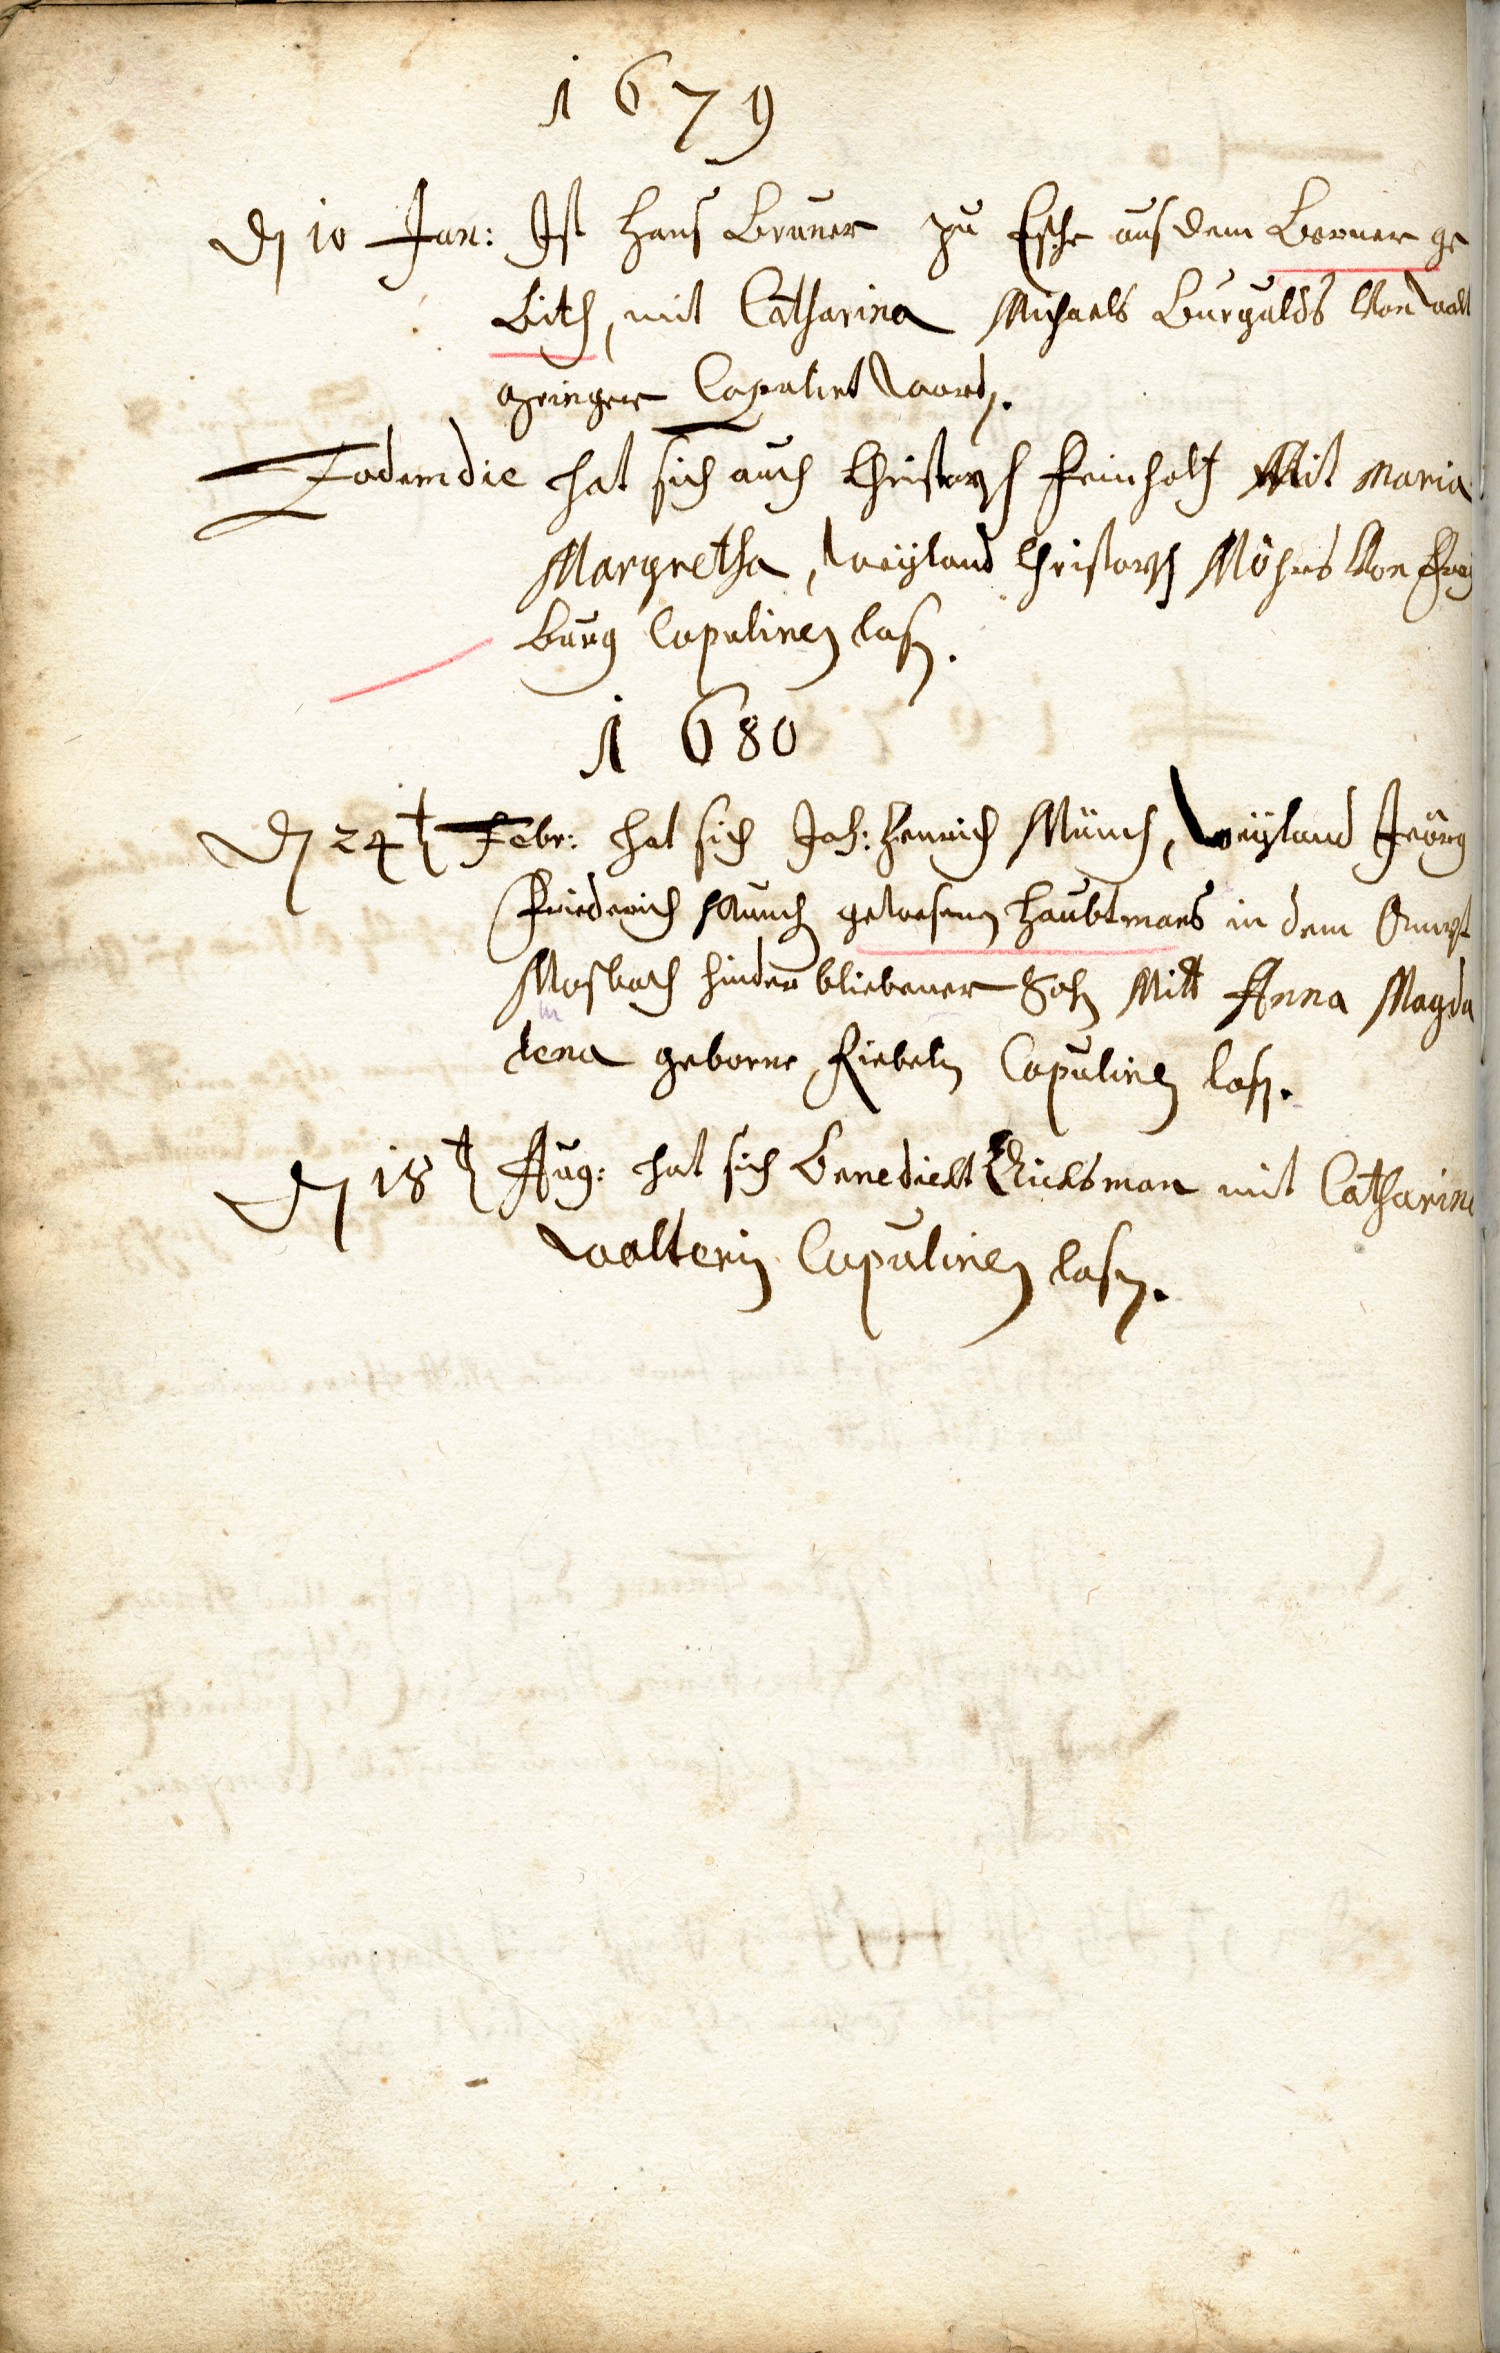 1679
Den 10 Jan: Ist Hans Bruner zu Esche aus dem Berner ge
bith, mit Catharina Michaels Burgulds von
Copulirt word.
Eodem die hat sich auch Christoph Reinholt Mit Maria
Margretha, weyland Christoph Möhrs von Frey
burg Copuliren lasen.
1680
Den 24t Febr: hat sich Joh: Henrich Münch, weyland Jeörg
Friederich Münch gewesenen Haubtmans in dem Ampt
Mosbach hinderbliebener Sohn Mitt Anna Magda
lena geborne Riebeln Copuliren lasen.
Den 18t Aug: hat sich Benedickt mit Catharina
Walterin Copuliren lasen.